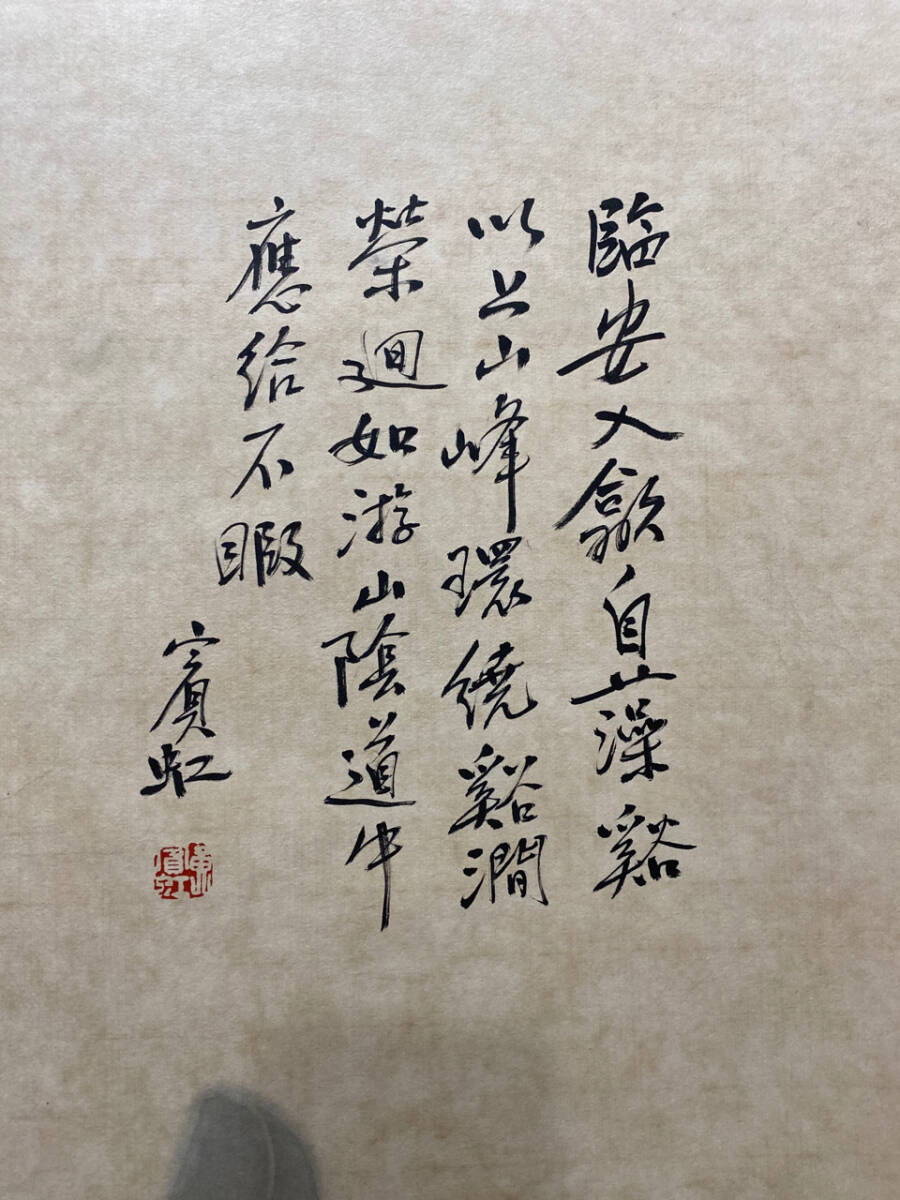 臨安入歙自藻谿
以上山峰環繞谿澗
縈迴如游山陰道中
應給不暇
賓虹
黃賓虹